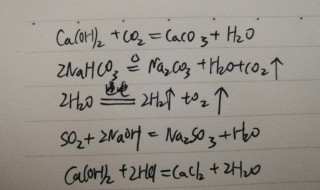 Ca(OH)₂ + CO₂ = CaCO₃ + H₂O
2NaHCO₃ ≜ Na₂CO₃ + H₂O + CO₂↑
2H₂O 通电═ 2H₂↑ + O₂↑
SO₂ + 2NaOH = Na₂SO₃ + H₂O
Ca(OH)₂ + 2HCl = CaCl₂ + 2H₂O